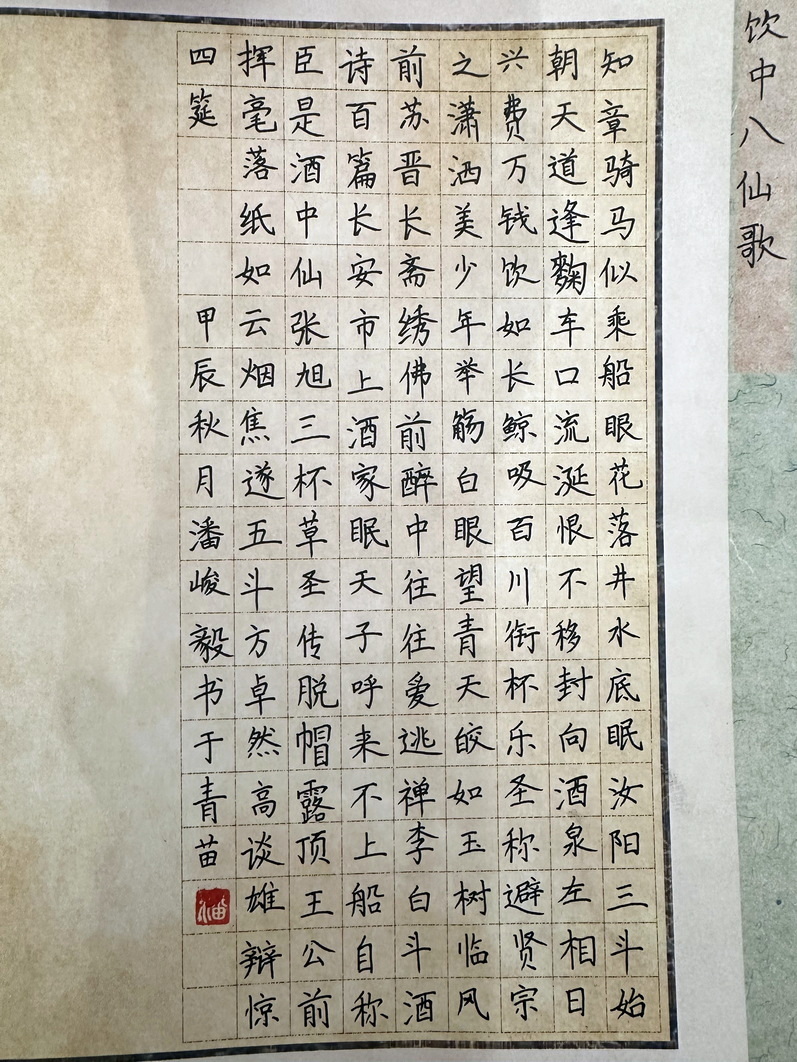 饮中八仙歌
知章骑马似乘船眼花落井水底眠汝阳三斗始
朝天道逢麴车口流涎恨不移封向酒泉左相日
兴费万钱饮如长鲸吸百川衔杯乐圣称避贤宗
之潇洒美少年举觞白眼望青天皎如玉树临风
前苏晋长斋绣佛前醉中往往爱逃禅李白斗酒
诗百篇长安市上酒家眠天子呼来不上船自称
臣是酒中仙张旭三杯草圣传脱帽露顶王公前
挥毫落纸如云烟焦遂五斗方卓然高谈雄辩惊
四筵 甲辰秋月潘峻毅书于青苗